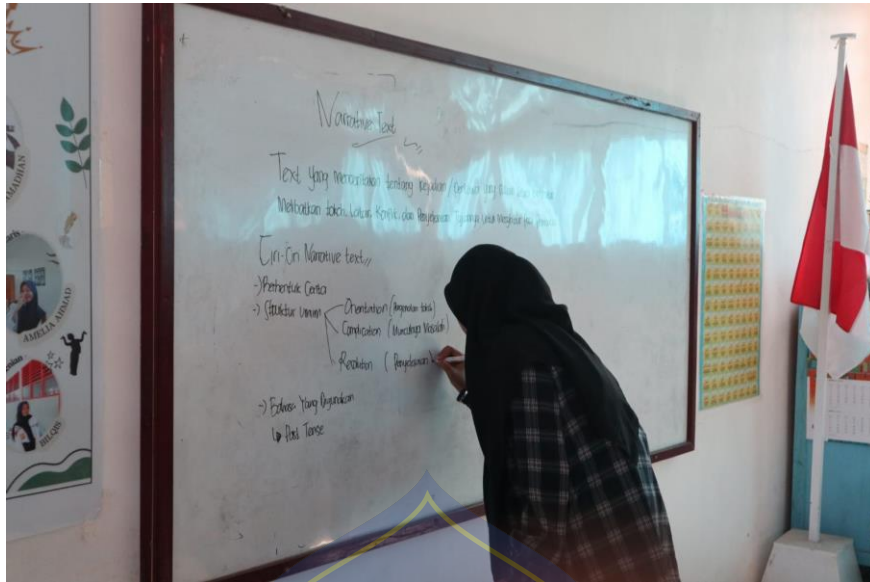 Narrative Text
Text yang menceritakan tentang kejadian / cerita yang
Melibatkan tokoh, Latar, Konflik, dan Penyelesaian Tujuannya Untuk Menghibur
Ciri-Ciri Narrative text
-) Berbentuk Cerita
-) Struktur Umum
Orientation (Pengenalan tokoh)
Complication (Munculnya Masalah)
Resolution (Penyelesaian)
-) Bahasa Yang Digunakan
↳ Past Tense
AMELIA AHMAD
BILQIS